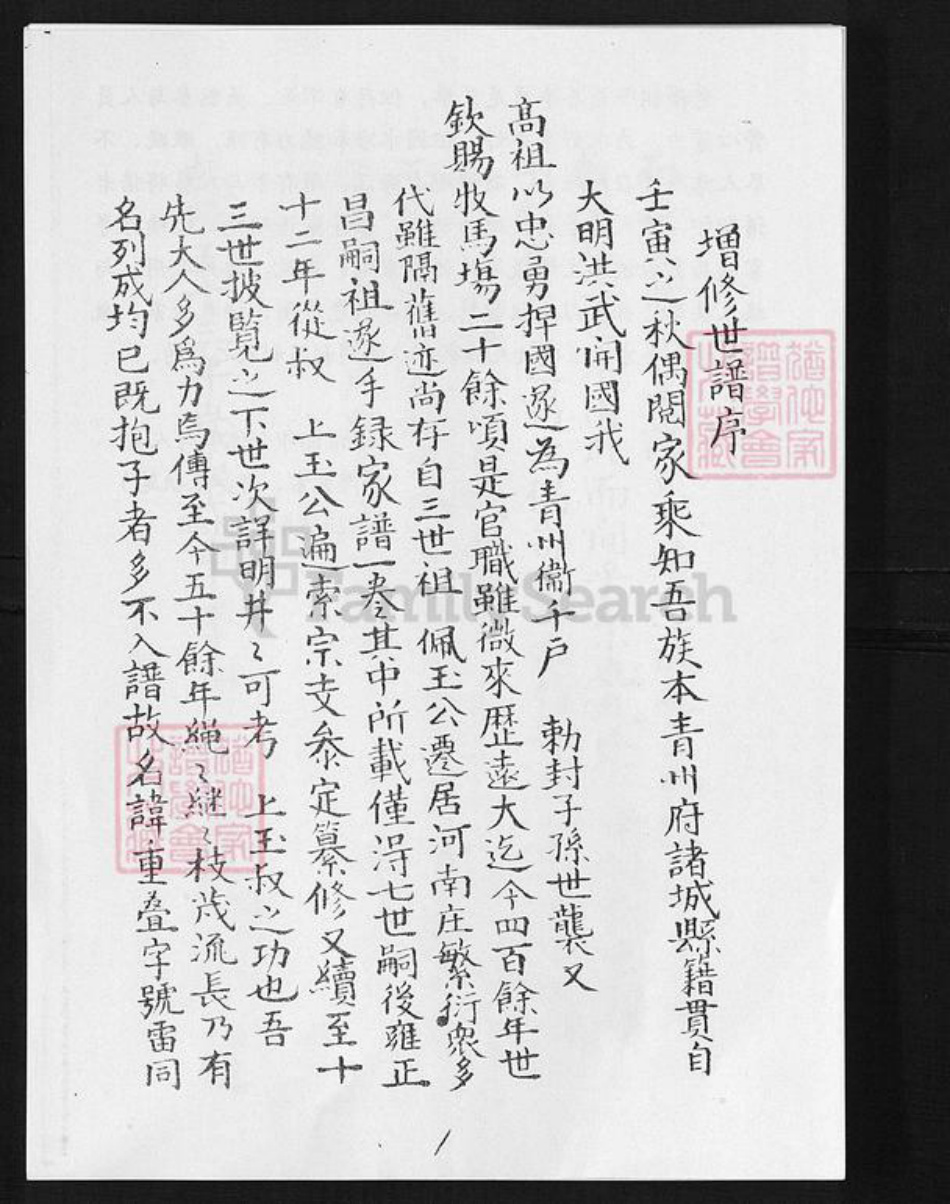 增修世譜序
壬寅之秋偶閱家乘知吾族本青州府諸城縣籍貫自
大明洪武開國我
高祖以忠勇捍國遂為青州衞千戶 勅封子孫世襲又
欽賜牧馬塲二十餘頃是官職雖微來歷遠大迄今四百餘年世
代雖隔舊迹尚存自三世祖 佩玉公遷居河南庄繁衍衆多
昌嗣祖遂手録家譜一卷其中所載僅淂七世嗣後雍正
十二年從叔 上玉公遍索宗支叅定纂修又續至十
三世披覧之下世次詳明井〻可考 上玉叔之功也吾
先大人多爲力焉傳至今五十餘年繩〻継〻枝茂流長乃有
名列成均已既抱子者多不入譜故名諱重叠字號雷同
1
FamilySearch